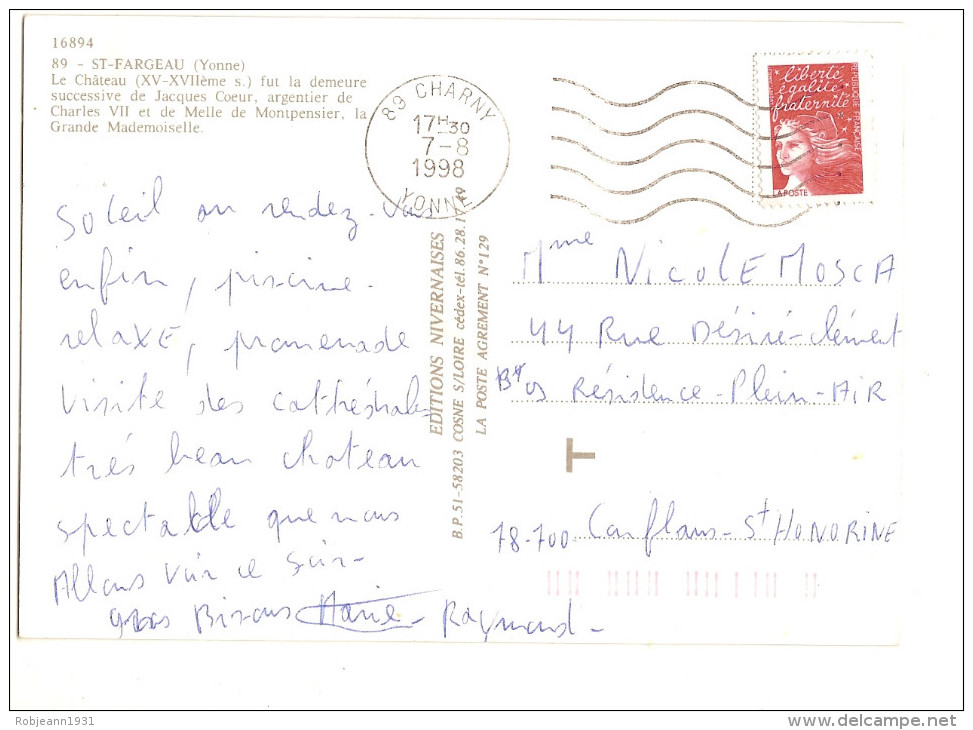 16894
89 - ST-FARGEAU (Yonne)
Le Château (XV-XVIIème s.) fut la demeure
successive de Jacques Coeur, argentier de
Charles VII et de Melle de Montpensier, la
Grande Mademoiselle.
89 CHARNY
17H30
7-8
1998
YONNE
liberté
égalité
fraternité
REPUBLIQUE FRANÇAISE
LA POSTE
Soleil au rendez-vous
enfin, piscine.
relaxE, promenade
visite des cathédrales
trés beau chateau
spectable que nous
Allons voir ce soir-
gros Bisous Marie- Raymond-
EDITIONS NIVERNAISES
B.P. 51-58203 COSNE S/LOIRE cédex-tél.86.28.17.49
LA POSTE AGREMENT N°129
Mme NICOLE MOSCA
44 Rue Désiré-clément
Résidence-Plein-AIR
T
78-700 Conflans-St HONORINE
Robjeann1931
delcampe.net